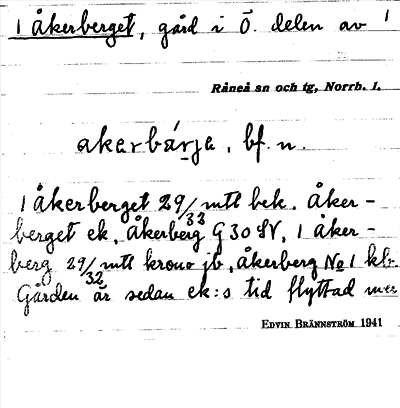 1 Åkerberget, gård i Ö. delen av 1
Råneå sn och tg, Norrb. l.
akarbárja, bf. n.
1 Åkerberget 29/32 mtl bek. Åker-
berget ek, Åkerberg G 30 SV, 1 Åker-
berg 29/32 mtl krono jb, Åkerberg No 1 kb.
Gården är sedan ek:s tid flyttad
EDVIN BRÄNNSTRÖM 1941